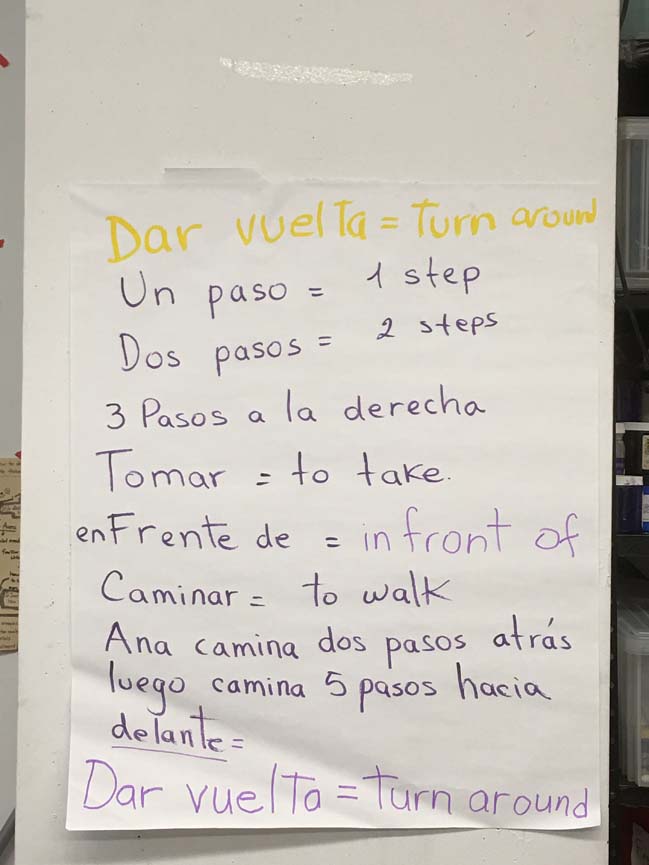 Dar vuelta = Turn around
Un paso = 1 step
Dos pasos = 2 steps
3 Pasos a la derecha
Tomar = to take.
enFrente de = in front of
Caminar = to walk
Ana camina dos pasos atrás
luego camina 5 pasos hacia
delante =
Dar vuelta = turn around